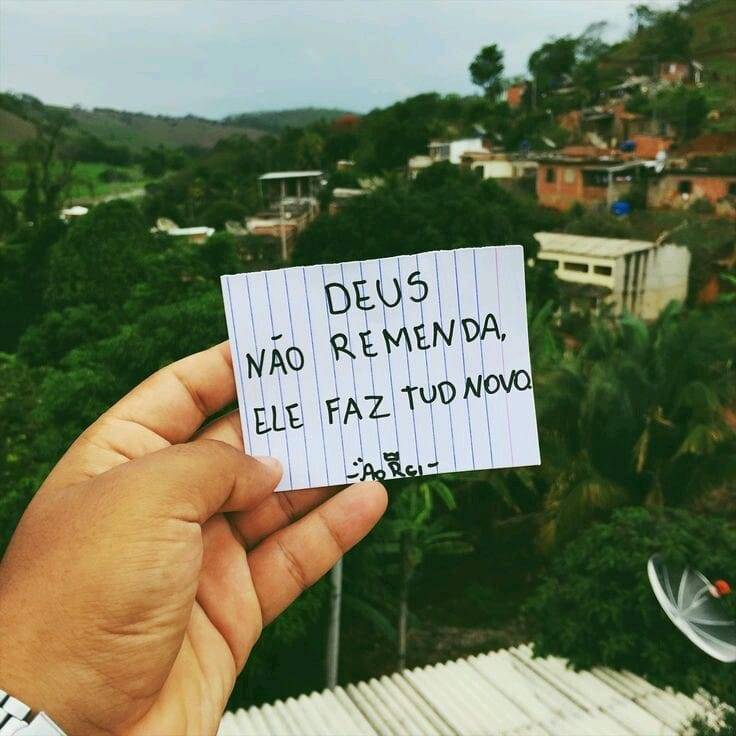 DEUS
NÃO REMENDA,
ELE FAZ TUD NOVO.
Ao Rei